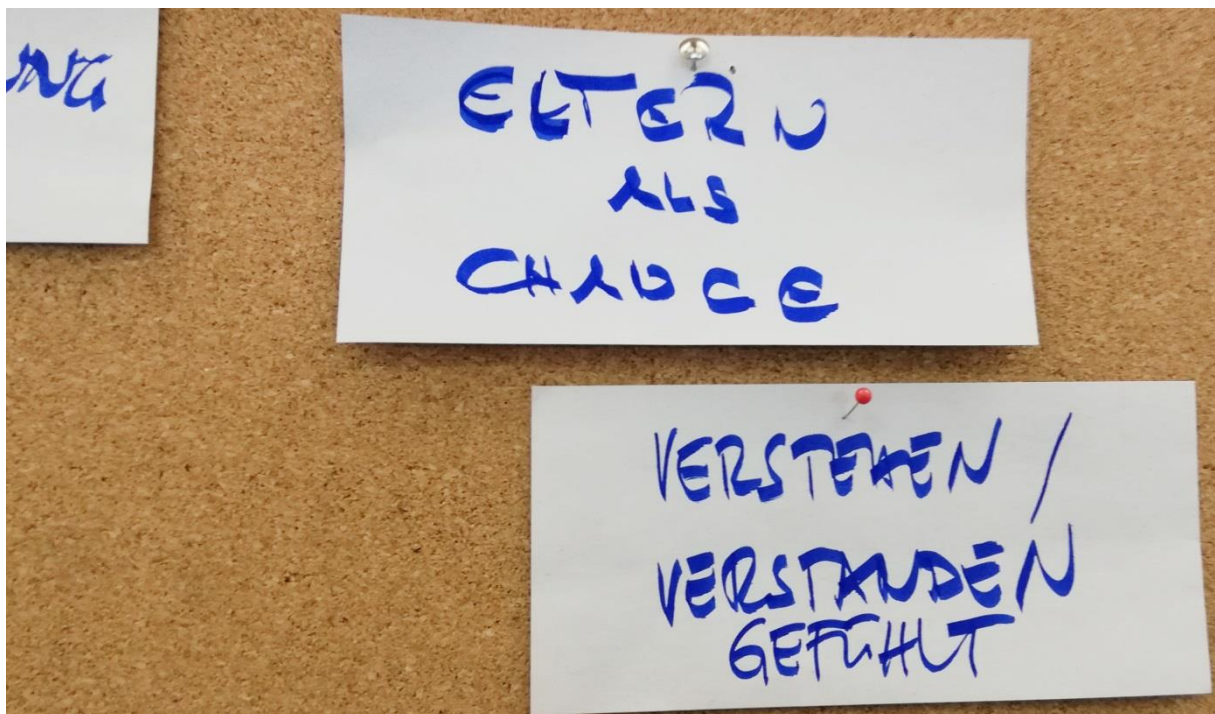 UNG
ELTERN
ALS
CHANCE
VERSTEHEN /
VERSTANDEN
GEFÜHLT